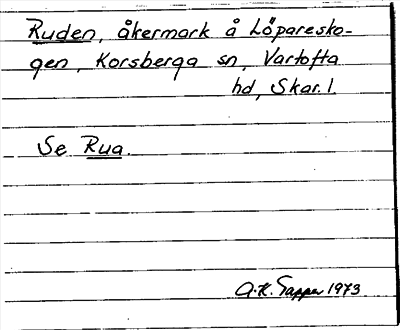 Ruden, åkermark å Löparesko-
gen, Korsberga sn, Vartofta
hd, Skar. l.
Se Rua.
A.K. Tapper 1973